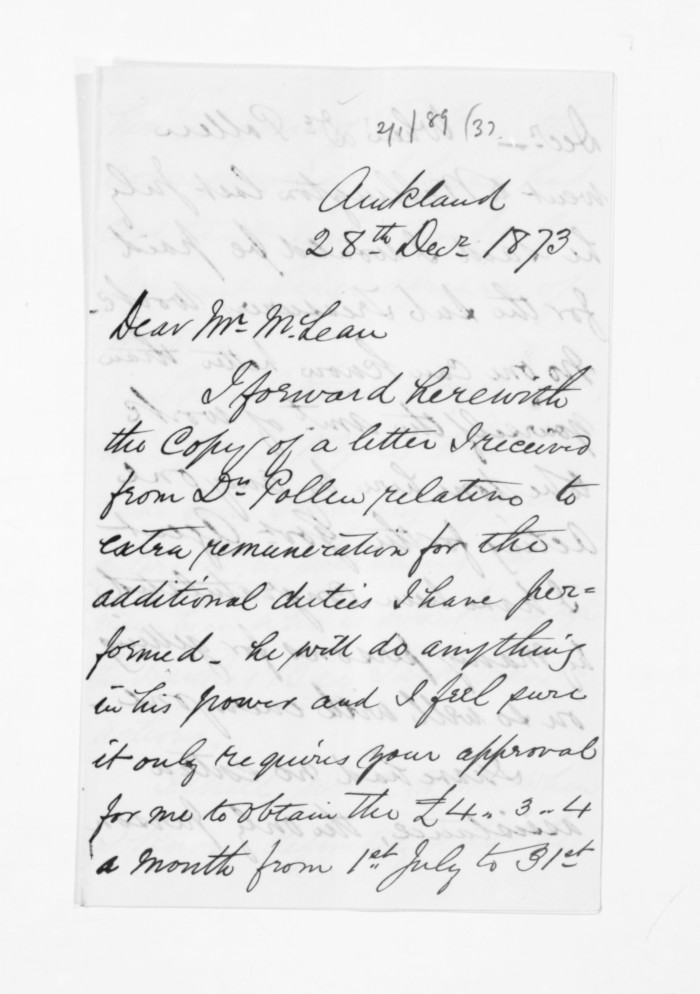 Auckland
28th Decr 1873
Dear Mr McLean
I forward herewith
the Copy of a letter I received
from Dr Pollen relative to
extra remuneration for the
additional duties I have per=
formed - he will do anything
in his power and I feel sure
it only requires your approval
for me to obtain the £4 " 3 " 4
a month from 1st July to 31st